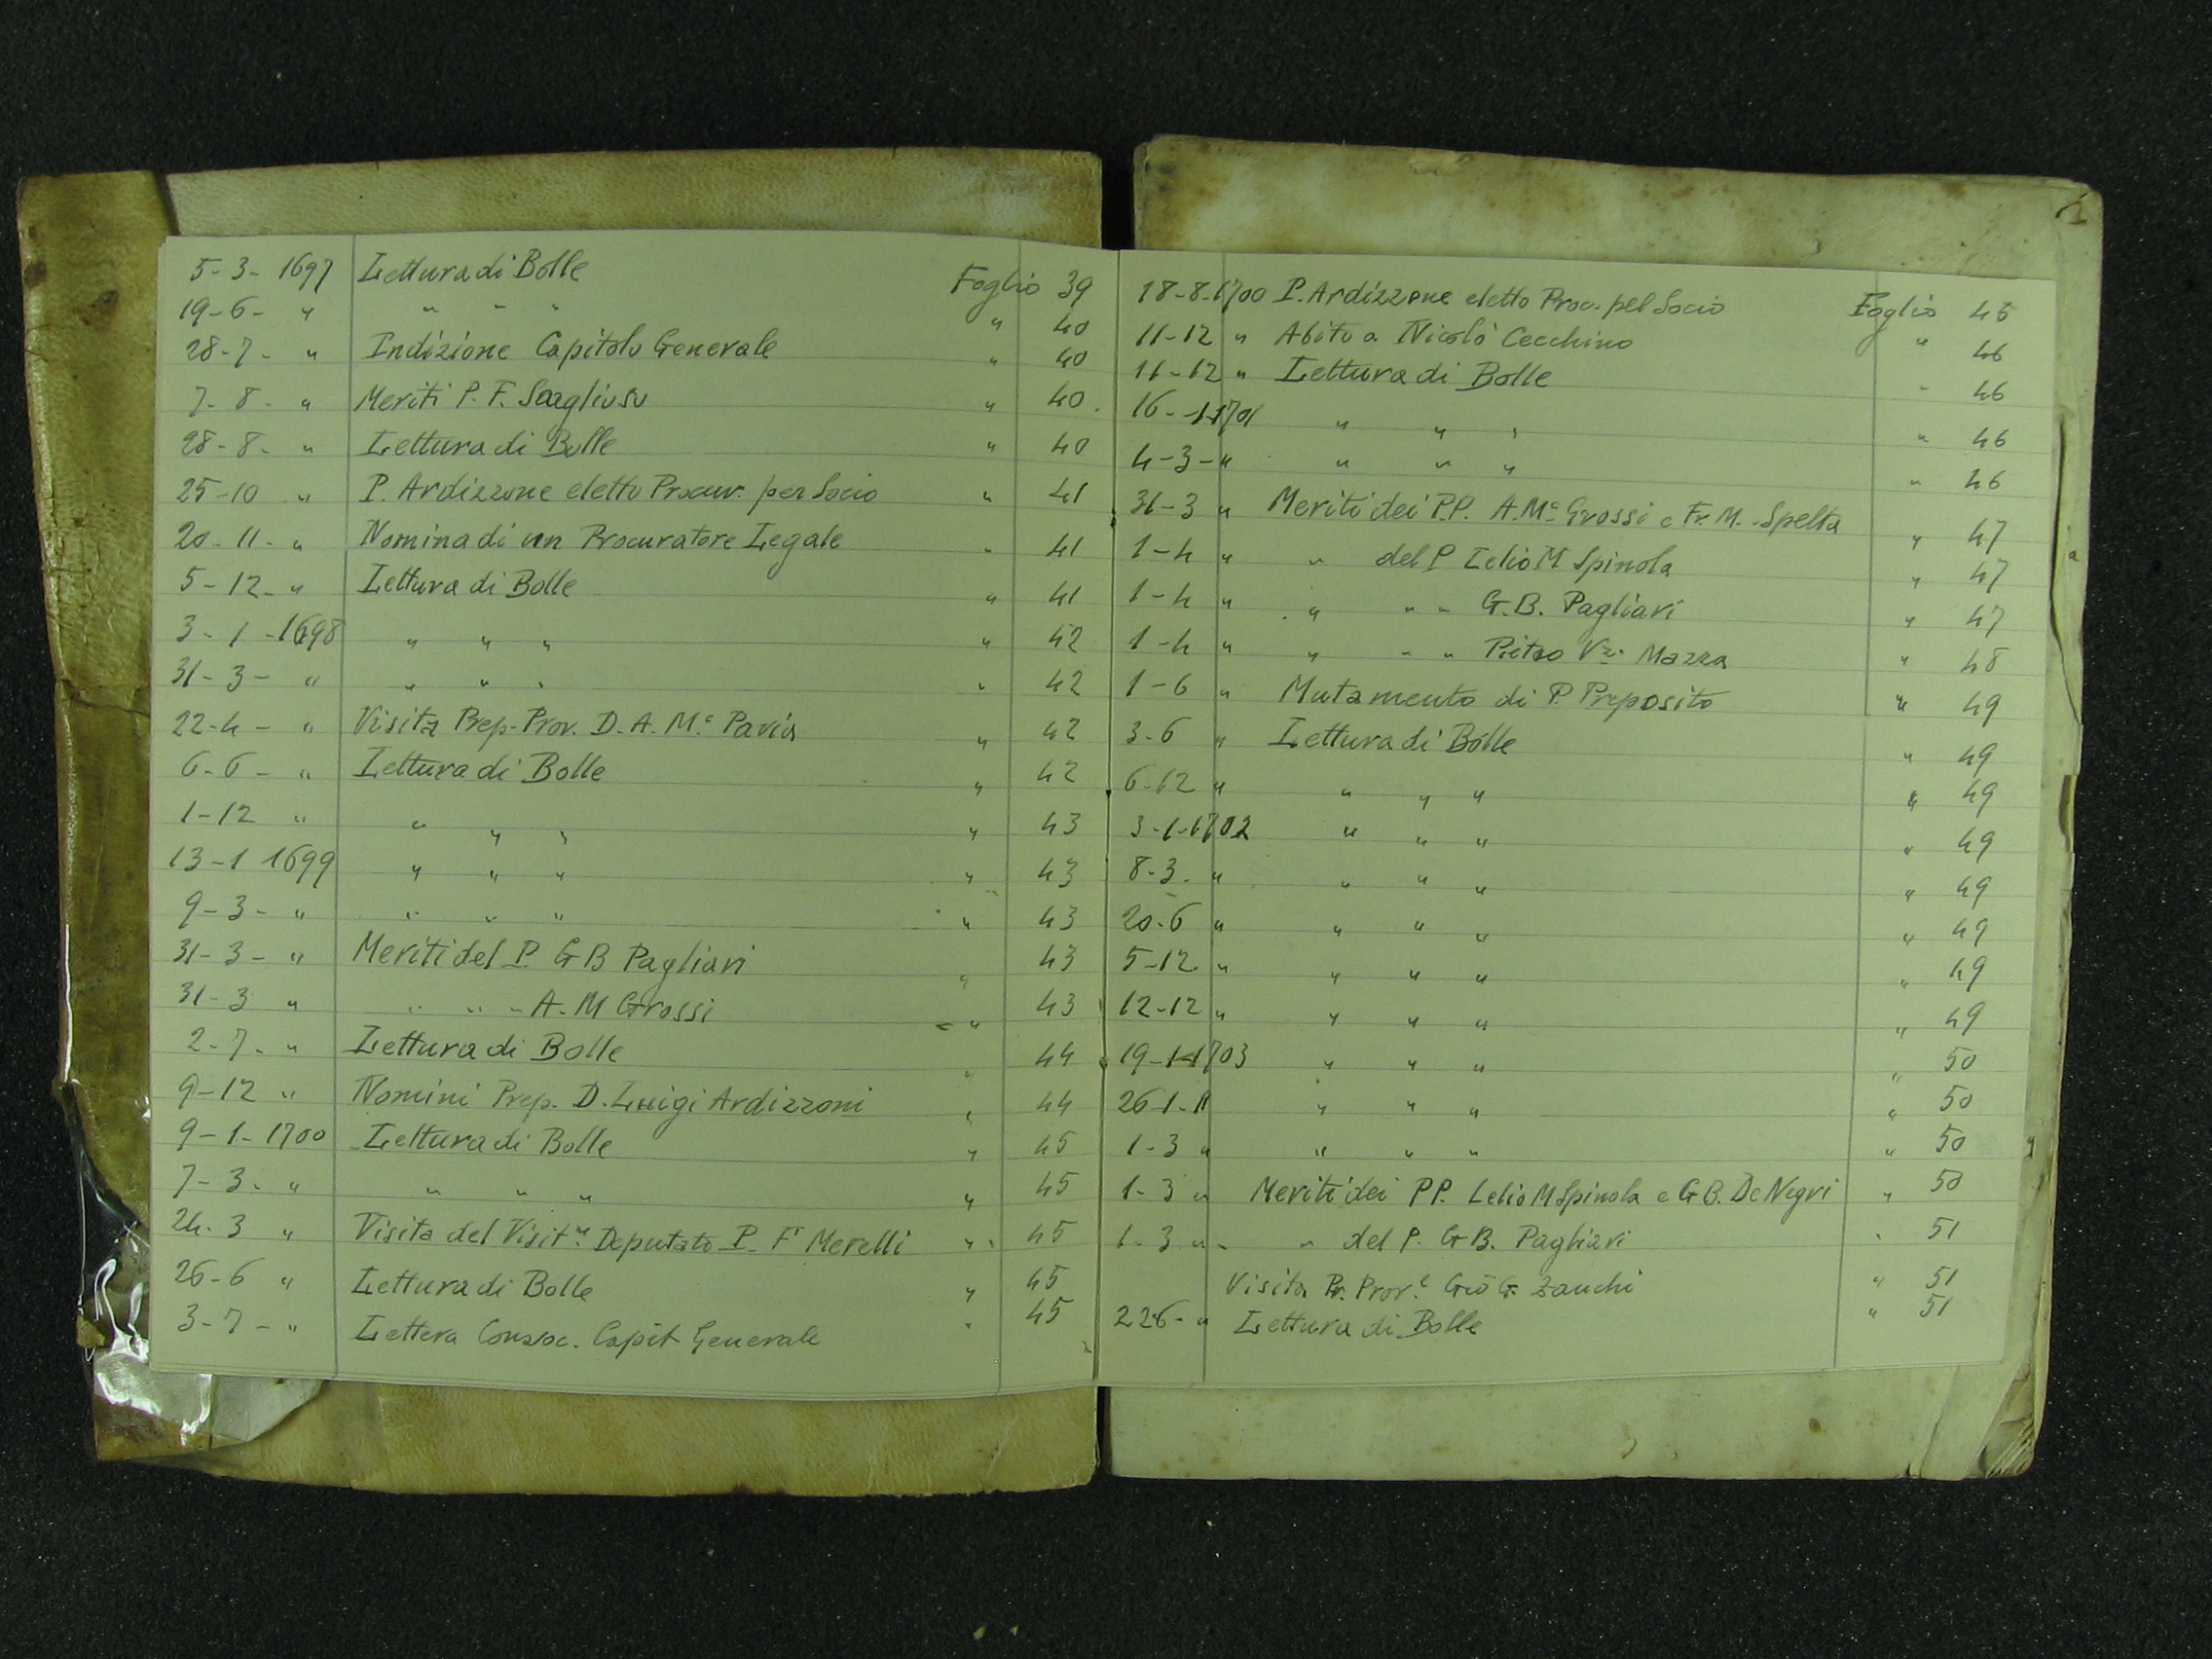 5-3-1697 Lettura di Bolle Foglio 39
19-6- " " " " " 40
28-7- " Indizione Capitolo Generale " 40
7-8- " Meriti P. F. " 40.
28-8- " Lettura di Bolle " 40
25-10 " P. Ardizzone eletto Procur. per Socio " 41
20-11- " Nomina di un Procuratore Legale " 41
5-12- " Lettura di Bolle " 41
3-1-1698 " " " " 42
31-3- " " " " " 42
22-4- " Visita Prep. Prov. D. A. M.ª Pavia " 42
6-6- " Lettura di Bolle " 42
1-12 " " " " " 43
13-1 1699 " " " " 43
9-3- " " " " " 43
31-3- " Meriti del P. G B Pagliari " 43
31-3 " " " " A. M Grossi " 43
2-7- " Lettura di Bolle " 44
9-12 " Nomini Prep. D. Luigi Ardizzoni " 44
9-1-1700 Lettura di Bolle " 45
7-3- " " " " " 45
24-3 " Visita del Visit.re Deputato P. Fr Merelli " 45
26-6 " Lettura di Bolle " 45
3-7- " Lettera Convoc. Capit Generale " 45
18-8-1700 P. Ardizzone eletto Proc. pel Socio Foglio 45
11-12 " Abito a Nicolò Cecchino " 46
11-12 " Lettura di Bolle " 46
16-1-1701 " " " " 46
4-3- " " " " " 46
31-3 " Meriti dei P.P. A. M.ª Grossi e Fr. M. Spelta " 47
1-4 " " del P Lelio M Spinola " 47
1-4 " " " " G.B. Pagliari " 47
1-4 " " " " Pietro Vz. Mazza " 48
1-6 " Mutamento di P. Preposito " 49
3-6 " Lettura di Bolle " 49
6-12 " " " " " 49
3-1-1702 " " " " 49
8-3- " " " " " 49
20-6 " " " " " 49
5-12 " " " " " 49
12-12 " " " " " 49
19-1-1703 " " " " 50
26-1- " " " " " 50
1-3 " " " " " 50
1-3 " Meriti dei PP. Lelio M Spinola e G B. De Negri " 50
1-3 " " del P. G B. Pagliari " 51
Visita Pr. Prov.e Giò G. Zanchi " 51
22-6- " Lettura di Bolle " 51